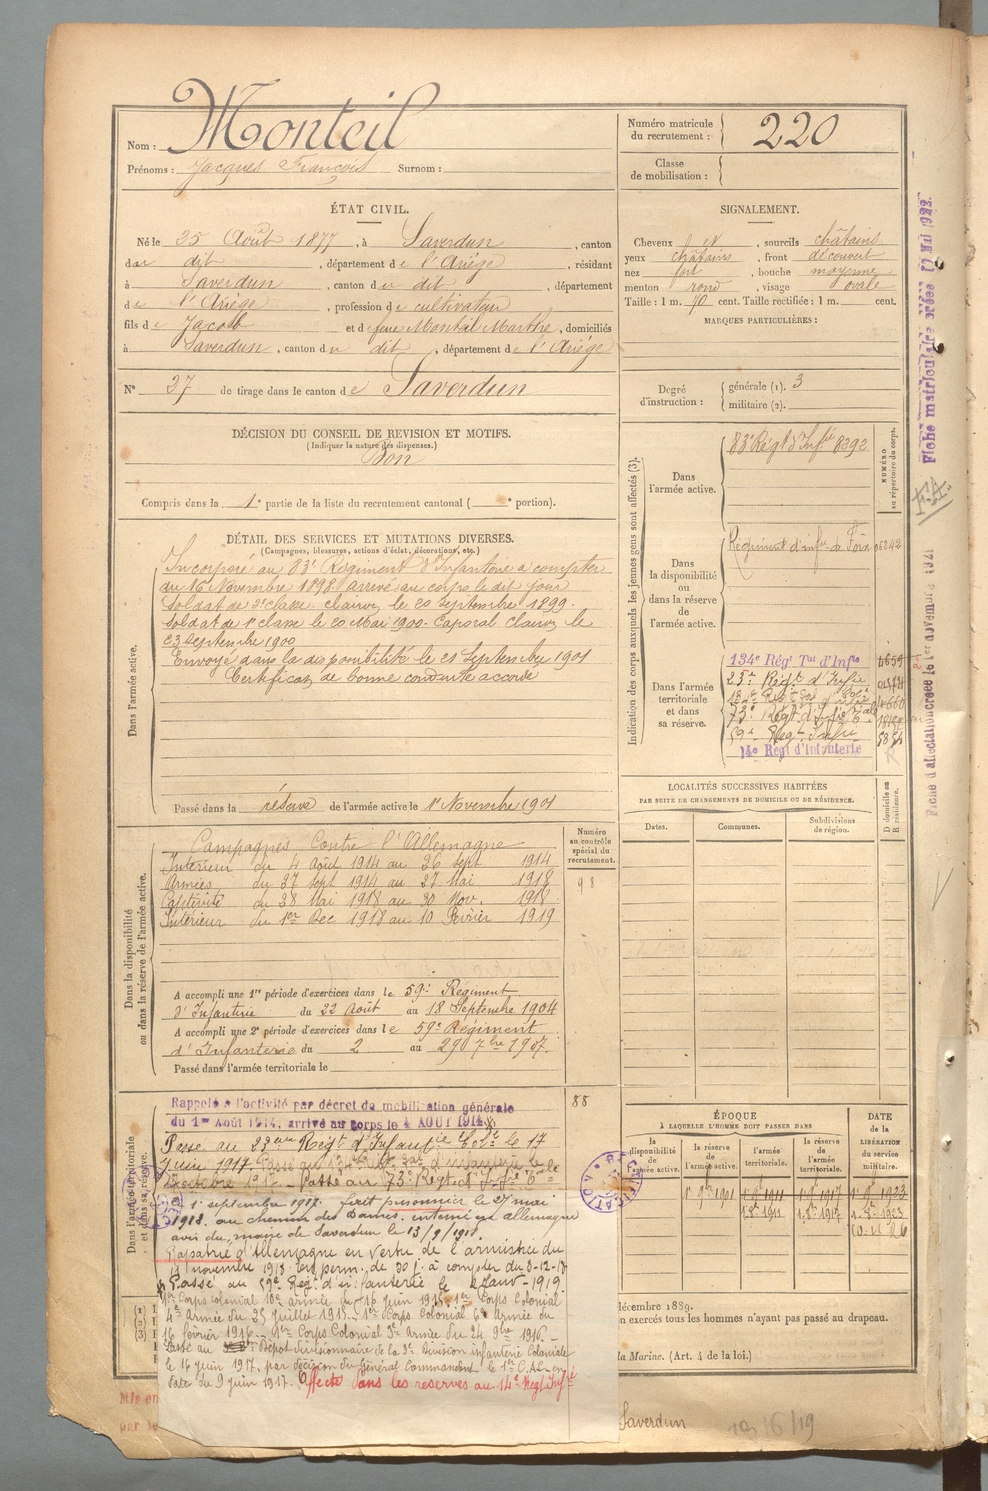 Nom : Monteil
Prénoms : Jacques François Surnom :
Numéro matricule du recrutement : 220
Classe de mobilisation :
ÉTAT CIVIL.
Né le 25 Août 1877, à Saverdun, canton
du dit, département de l'Ariège, résidant
à Saverdun, canton du dit, département
de l'Ariège, profession de cultivateur
fils de Jacob et de feue Monteil Marthe, domiciliés
à Saverdun, canton du dit, département de l'Ariège
N° 37 de tirage dans le canton de Saverdun
SIGNALEMENT.
Cheveux et, sourcils châtains
yeux châtains, front découvert
nez fort, bouche moyenne
menton rond, visage ovale
Taille : 1 m. 70 cent. Taille rectifiée : 1 m. cent.
MARQUES PARTICULIÈRES :
Degré d'instruction : générale (1). 3
militaire (2).
DÉCISION DU CONSEIL DE REVISION ET MOTIFS.
(Indiquer la nature des dispenses.)
Bon
Compris dans la 1e partie de la liste du recrutement cantonal ( e portion).
DÉTAIL DES SERVICES ET MUTATIONS DIVERSES.
(Campagnes, blessures, actions d'éclat, décorations, etc.)
Dans l'armée active.
Incorporé au 83e Régiment d'Infanterie à compter
du 16 Novembre 1898 arrivé au corps le dit jour
Soldat de 2e classe. Clairon le 20 Septembre 1899.
Soldat de 1e classe le 20 Mai 1900. Caporal Clairon le
23 septembre 1900
Envoyé dans la disponibilité le 21 Septembre 1901
Certificat de bonne conduite accordé
Passé dans la réserve de l'armée active le 1er Novembre 1901
Dans la disponibilité ou dans la réserve de l'armée active.
Numéro au contrôle spécial du recrutement.
98
Campagnes Contre l'Allemagne
Intérieur du 4 Août 1914 au 26 sept 1914
Armées du 27 sept 1914 au 27 Mai 1918
Captivité du 28 Mai 1918 au 30 Nov. 1918
Intérieur du 1er Dec 1918 au 10 Février 1919
A accompli une 1re période d'exercices dans le 59e Régiment
d'Infanterie du 22 Août au 18 Septembre 1904
A accompli une 2e période d'exercices dans le 59e Régiment
d'Infanterie du 2 au 29 7bre 1907.
Passé dans l'armée territoriale le
Dans l'armée territoriale et dans sa réserve.
88
Rappelé à l'activité par décret de mobilisation générale
du 1er Août 1914, arrivé au corps le 4 AOUT 1914
Passé au 33eme Régt d'Infantie Cole le 17
Juin 1917.
Passé au 73e Régt d'
1 septembre 1917. fait prisonnier le 27 mai
1918. au chemin des Dames. interné en allemagne
avis du maire de Saverdun le 13/9/1918.
Rapatrié d'Allemagne en vertu de l'armistice du
11 novembre 1918 en perm. de 30 j. à compter du 3-12-18
Passé au 59e Régt d'infanterie le 2 Janv. 1919
1er Corps colonial 10e armée du 16 Juin 1915. 1er Corps Colonial
4e Armée du 25 Juillet 1915. 1er Corps Colonial 6e Armée du
16 février 1916. 1er Corps Colonial 3e Armée du 24 9bre 1916.
Passé au Dépôt divisionnaire de la 3e Division infanterie Coloniale
le 16 juin 1917. par décision du Général Commandant le 1er C.A.C. en
date du 9 juin 1917. Affecté dans les réserves au 14e Régt Infrie
Indication des corps auxquels les jeunes gens sont affectés (3).
NUMÉRO au répertoire du corps.
Dans l'armée active.
83e Régt d'Infrie 8392
Dans la disponibilité ou dans la réserve de l'armée active.
Régiment d'infie de Foix 06242
Dans l'armée territoriale et dans sa réserve.
134e Régt Tal d'Infie 4659
73e Régt d'Infie
59e Régt Infie
14e Régt d'Infanterie
LOCALITÉS SUCCESSIVES HABITÉES
PAR SUITE DE CHANGEMENTS DE DOMICILE OU DE RÉSIDENCE.
Dates. Communes. Subdivisions de région. D domicile ou R résidence.
ÉPOQUE
À LAQUELLE L'HOMME DOIT PASSER DANS
la disponibilité de l'armée active.
la réserve de l'armée active.
l'armée territoriale.
la réserve de l'armée territoriale.
DATE de la LIBÉRATION du service militaire.
1er 9bre 1901 1er 9 1911 1er 9 1917 1er 9 1923
1-8-1911 1-8-1917 1-8-1923
10-11-26
RECTIFICATION
décembre 1889.
n exercés tous les hommes n'ayant pas passé au drapeau.
la Marine. (Art. 4 de la loi.)
Mis en
par le
Saverdun
10/6/19
Fiche matriculaire créée
F.A.
Fiche d'affectation créée le 1er novembre 1921